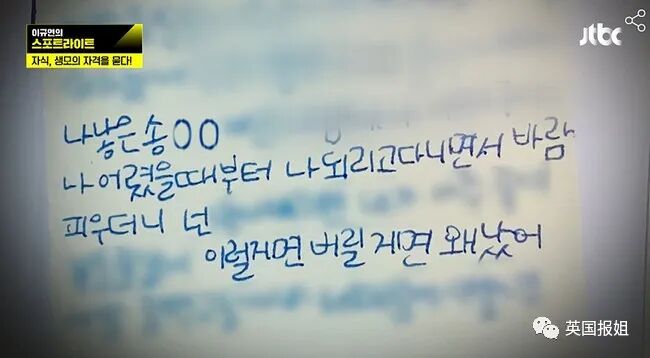 이규연의
스포트라이트
자식, 생모의 자격을 묻다!
jtbc
나낳은 송OO
나 어렸을때부터 나 되리고다니면서 바람
피우더니 넌
이럴게면 버릴 게면 왜 낳았어
英国报姐